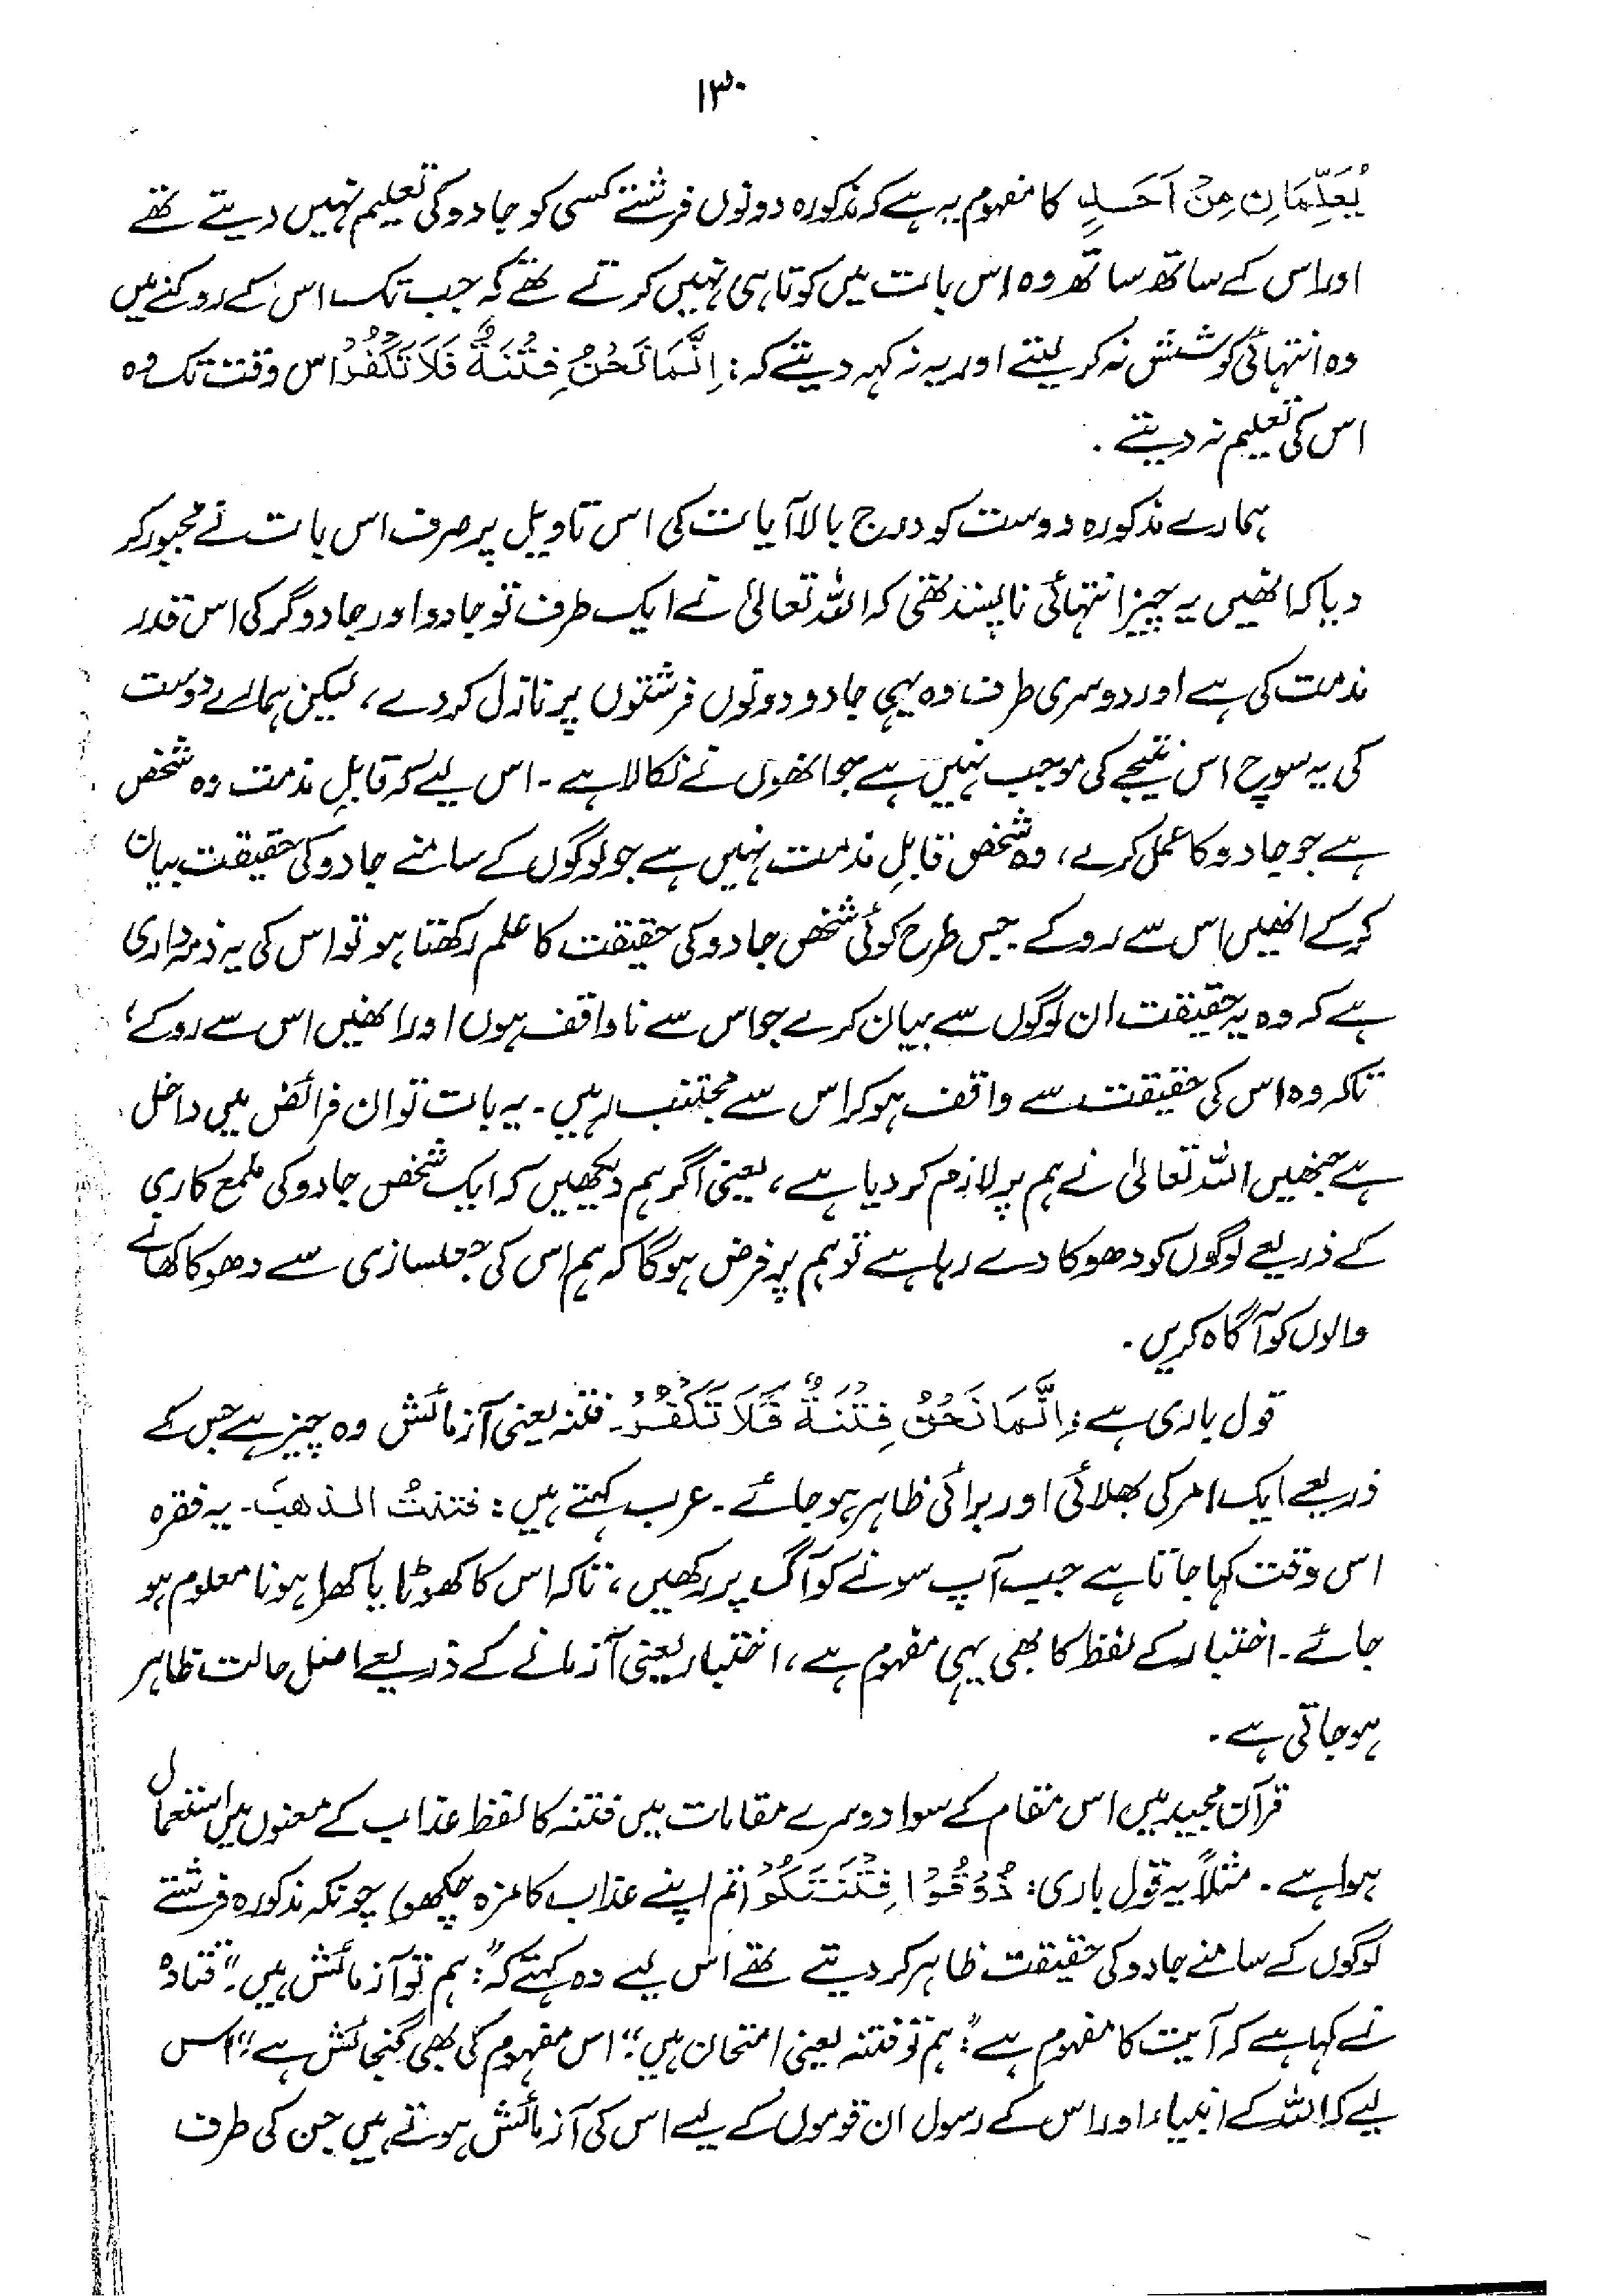 ۱۳۰
یُعَلِّمَانِ مِنْ اَحَدٍ کا مفہوم یہ ہے کہ مذکورہ دونوں فرشتے کسی کو جادو کی تعلیم نہیں دیتے تھے
اور اس کے ساتھ ساتھ وہ اس بات میں کوتاہی نہیں کرتے تھے کہ جب تک اس کے روکنے میں
وہ انتہائی کوشش نہ کر لیتے اور یہ نہ کہہ دیتے کہ: اِنَّمَا نَحْنُ فِتْنَةٌ فَلَا تَكْفُرْ اس وقت تک وہ
اس کی تعلیم نہ دیتے .
ہمارے مذکورہ دوست کو درج بالا آیات کی اس تاویل پر صرف اس بات نے مجبور کر
دیا کہ انھیں یہ چیز انتہائی ناپسند تھی کہ اللہ تعالیٰ نے ایک طرف تو جادو اور جادوگر کی اس قدر
مذمت کی ہے اور دوسری طرف وہ یہی جادو دونوں فرشتوں پر نازل کر دے، لیکن ہمارے دوست
کی یہ سوچ اس نتیجے کی موجب نہیں ہے جو انھوں نے نکالا ہے۔ اس لیے کہ قابلِ مذمت وہ شخص
ہے جو جادو کا عمل کرے، وہ شخص قابلِ مذمت نہیں ہے جو لوگوں کے سامنے جادو کی حقیقت بیان
کر کے انھیں اس سے روکے۔ جس طرح کوئی شخص جادو کی حقیقت کا علم رکھتا ہو تو اس کی یہ ذمہ داری
ہے کہ وہ یہ حقیقت ان لوگوں سے بیان کرے جو اس سے ناواقف ہوں اور انھیں اس سے روکے،
تاکہ وہ اس کی حقیقت سے واقف ہو کر اس سے مجتنب رہیں۔ یہ بات تو ان فرائض میں داخل
ہے جنھیں اللہ تعالیٰ نے ہم پر لازم کر دیا ہے، یعنی اگر ہم دیکھیں کہ ایک شخص جادو کی ملمع کاری
کے ذریعے لوگوں کو دھوکا دے رہا ہے تو ہم پر فرض ہوگا کہ ہم اس کی جعلسازی سے دھوکا کھانے
والوں کو آگاہ کریں۔
قول باری ہے: اِنَّمَا نَحْنُ فِتْنَةٌ فَلَا تَكْفُرْ۔ فتنہ یعنی آزمائش وہ چیز ہے جس کے
ذریعے ایک امر کی بھلائی اور برائی ظاہر ہو جائے۔ عرب کہتے ہیں: فتنتُ الذهبَ۔ یہ فقرہ
اس وقت کہا جاتا ہے جب آپ سونے کو آگ پر رکھیں، تاکہ اس کا کھوٹا یا کھرا ہونا معلوم ہو
جائے۔ اختبار کے لفظ کا بھی یہی مفہوم ہے، اختبار یعنی آزمانے کے ذریعے اصل حالت ظاہر
ہو جاتی ہے۔
قرآن مجید میں اس مقام کے سوا دوسرے مقامات میں فتنہ کا لفظ عذاب کے معنوں میں استعمال
ہوا ہے۔ مثلاً یہ قول باری: ذُوْقُوْا فِتْنَتَكُمْ (تم اپنے عذاب کا مزہ چکھو) چونکہ مذکورہ فرشتے
لوگوں کے سامنے جادو کی حقیقت ظاہر کر دیتے تھے اس لیے وہ کہتے کہ: "ہم تو آزمائش ہیں"۔ قتادہ
نے کہا ہے کہ آیت کا مفہوم ہے: "ہم تو فتنہ یعنی امتحان ہیں" اس مفہوم کی بھی گنجائش ہے" اس
لیے کہ اللہ کے انبیاء اور اس کے رسول ان قوموں کے لیے اس کی آزمائش ہوتے ہیں جن کی طرف